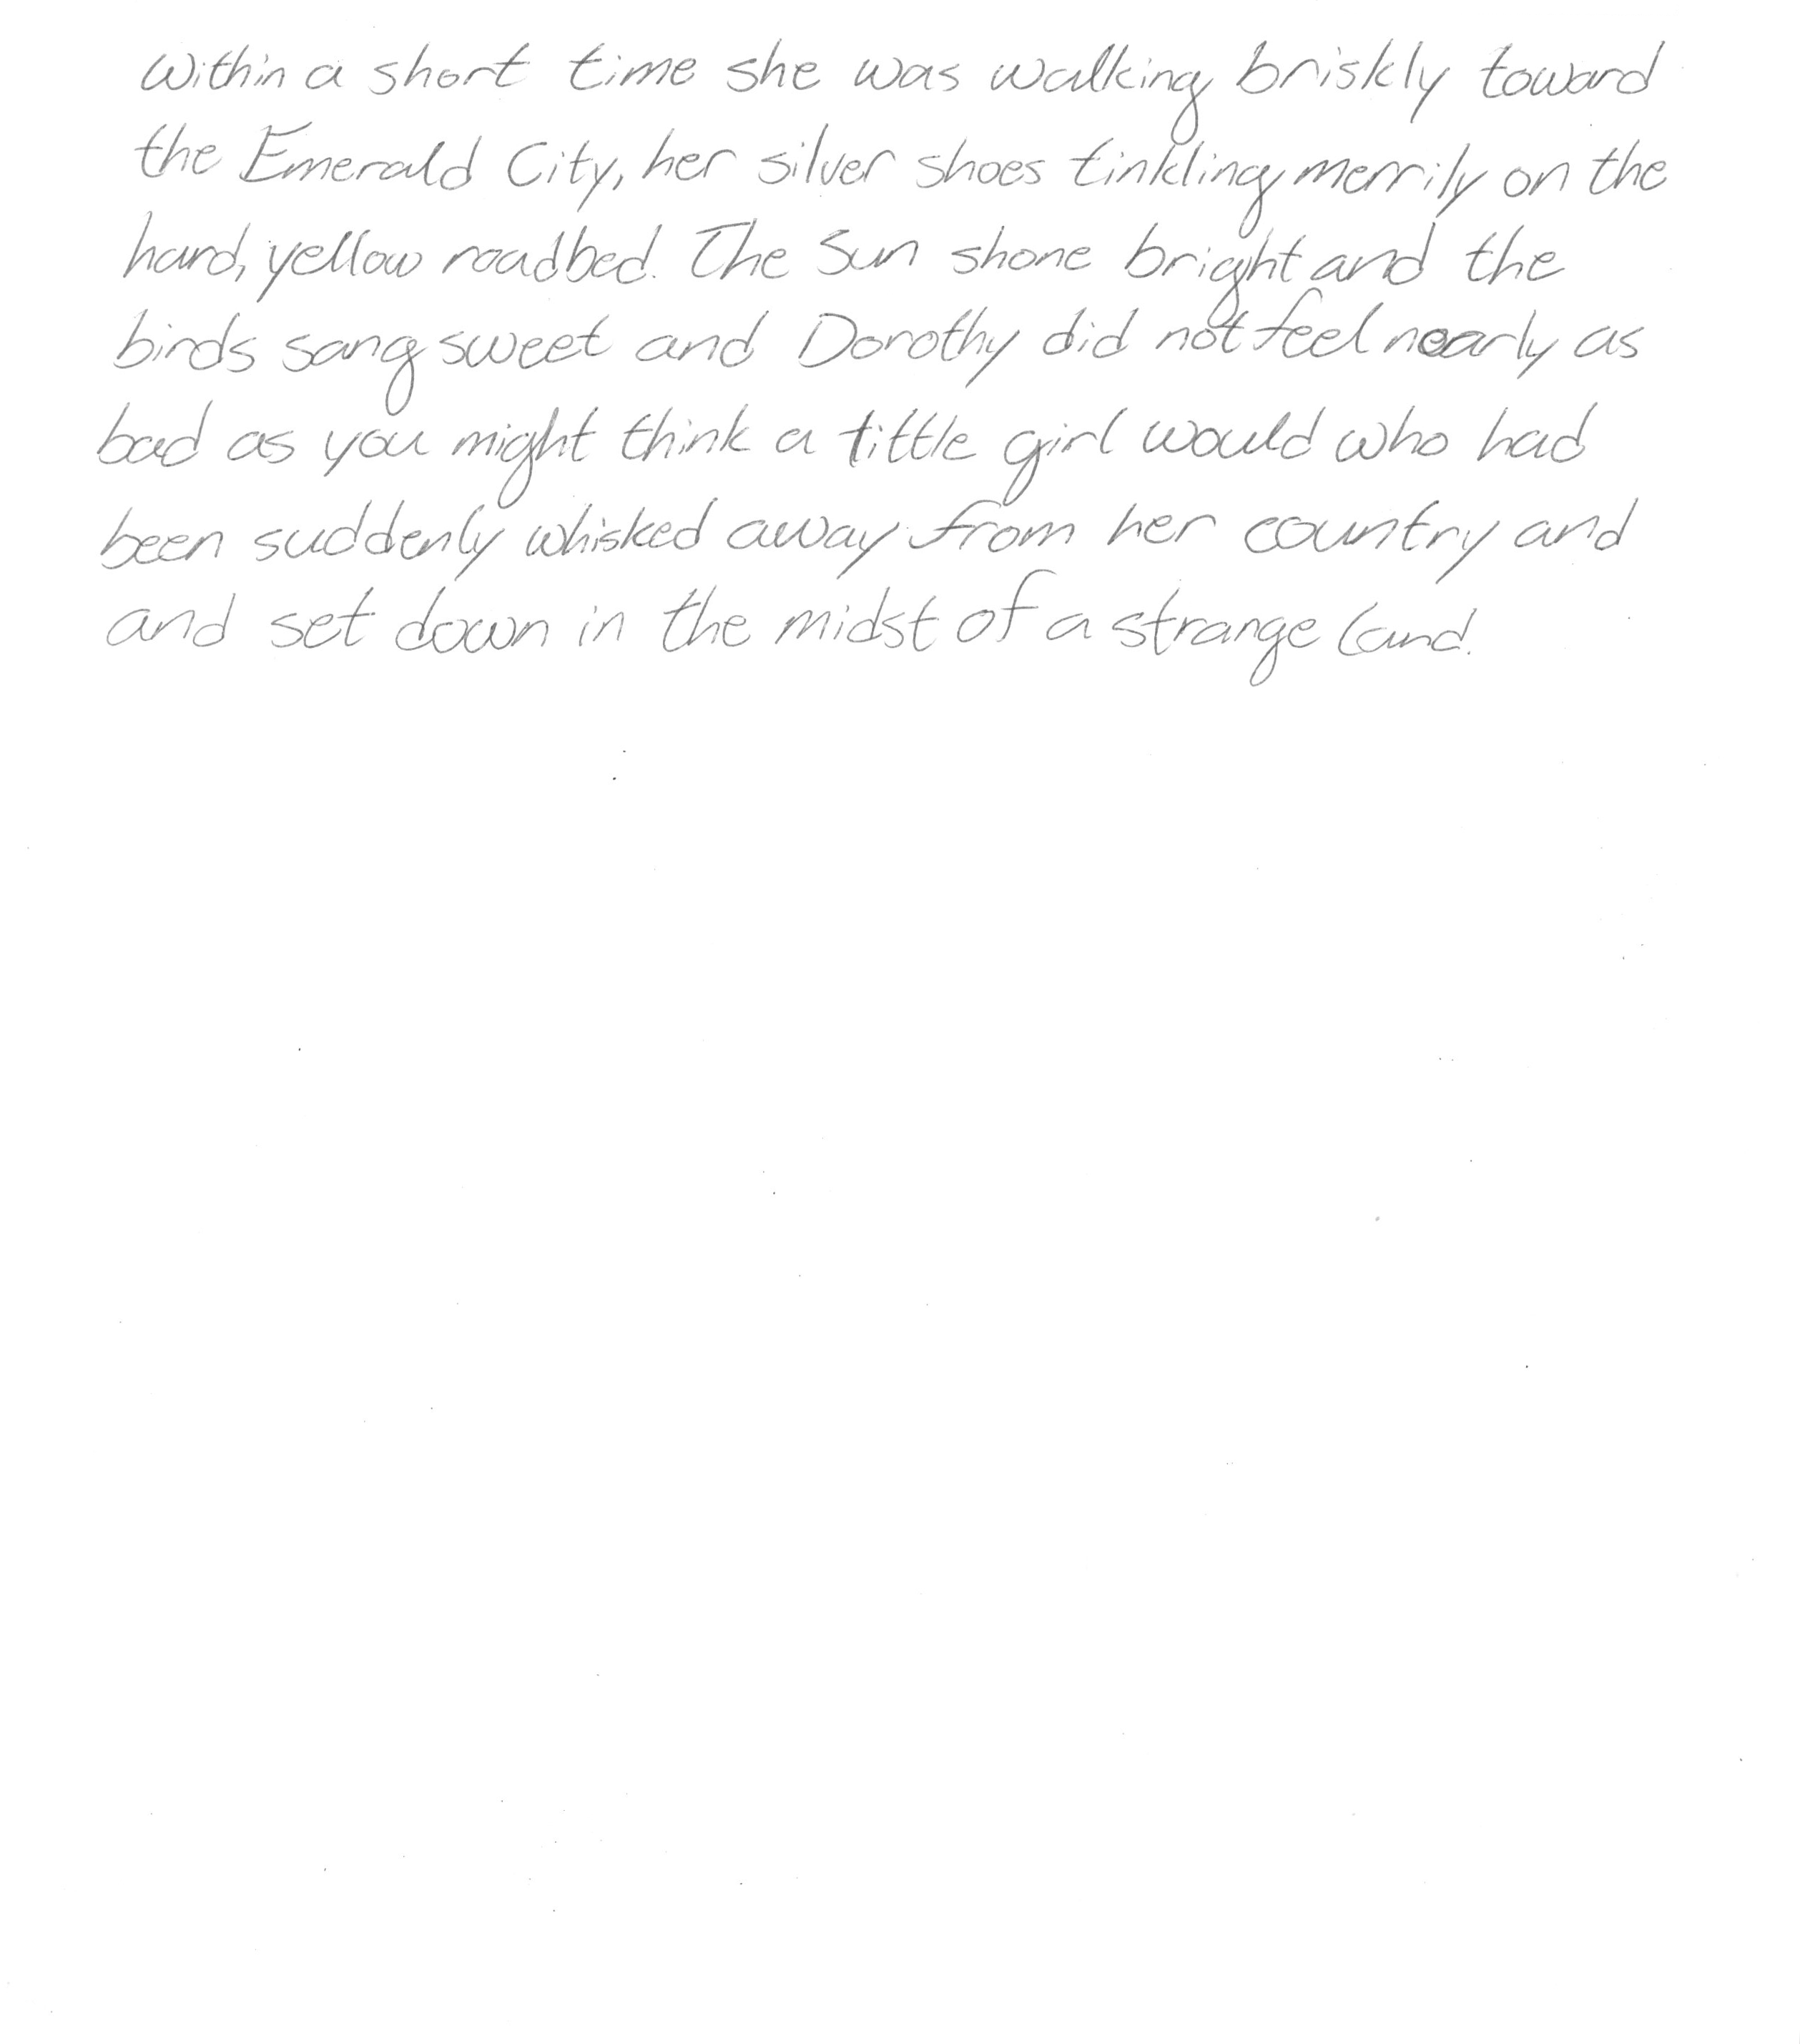 Within a short time she was walking briskly toward
the Emerald City, her silver shoes tinkling merrily on the
hard, yellow roadbed. The sun shone bright and the
birds sang sweet and Dorothy did not feel nearly as
bad as you might think a little girl would who had
been suddenly whisked away from her country and
and set down in the midst of a strange land.